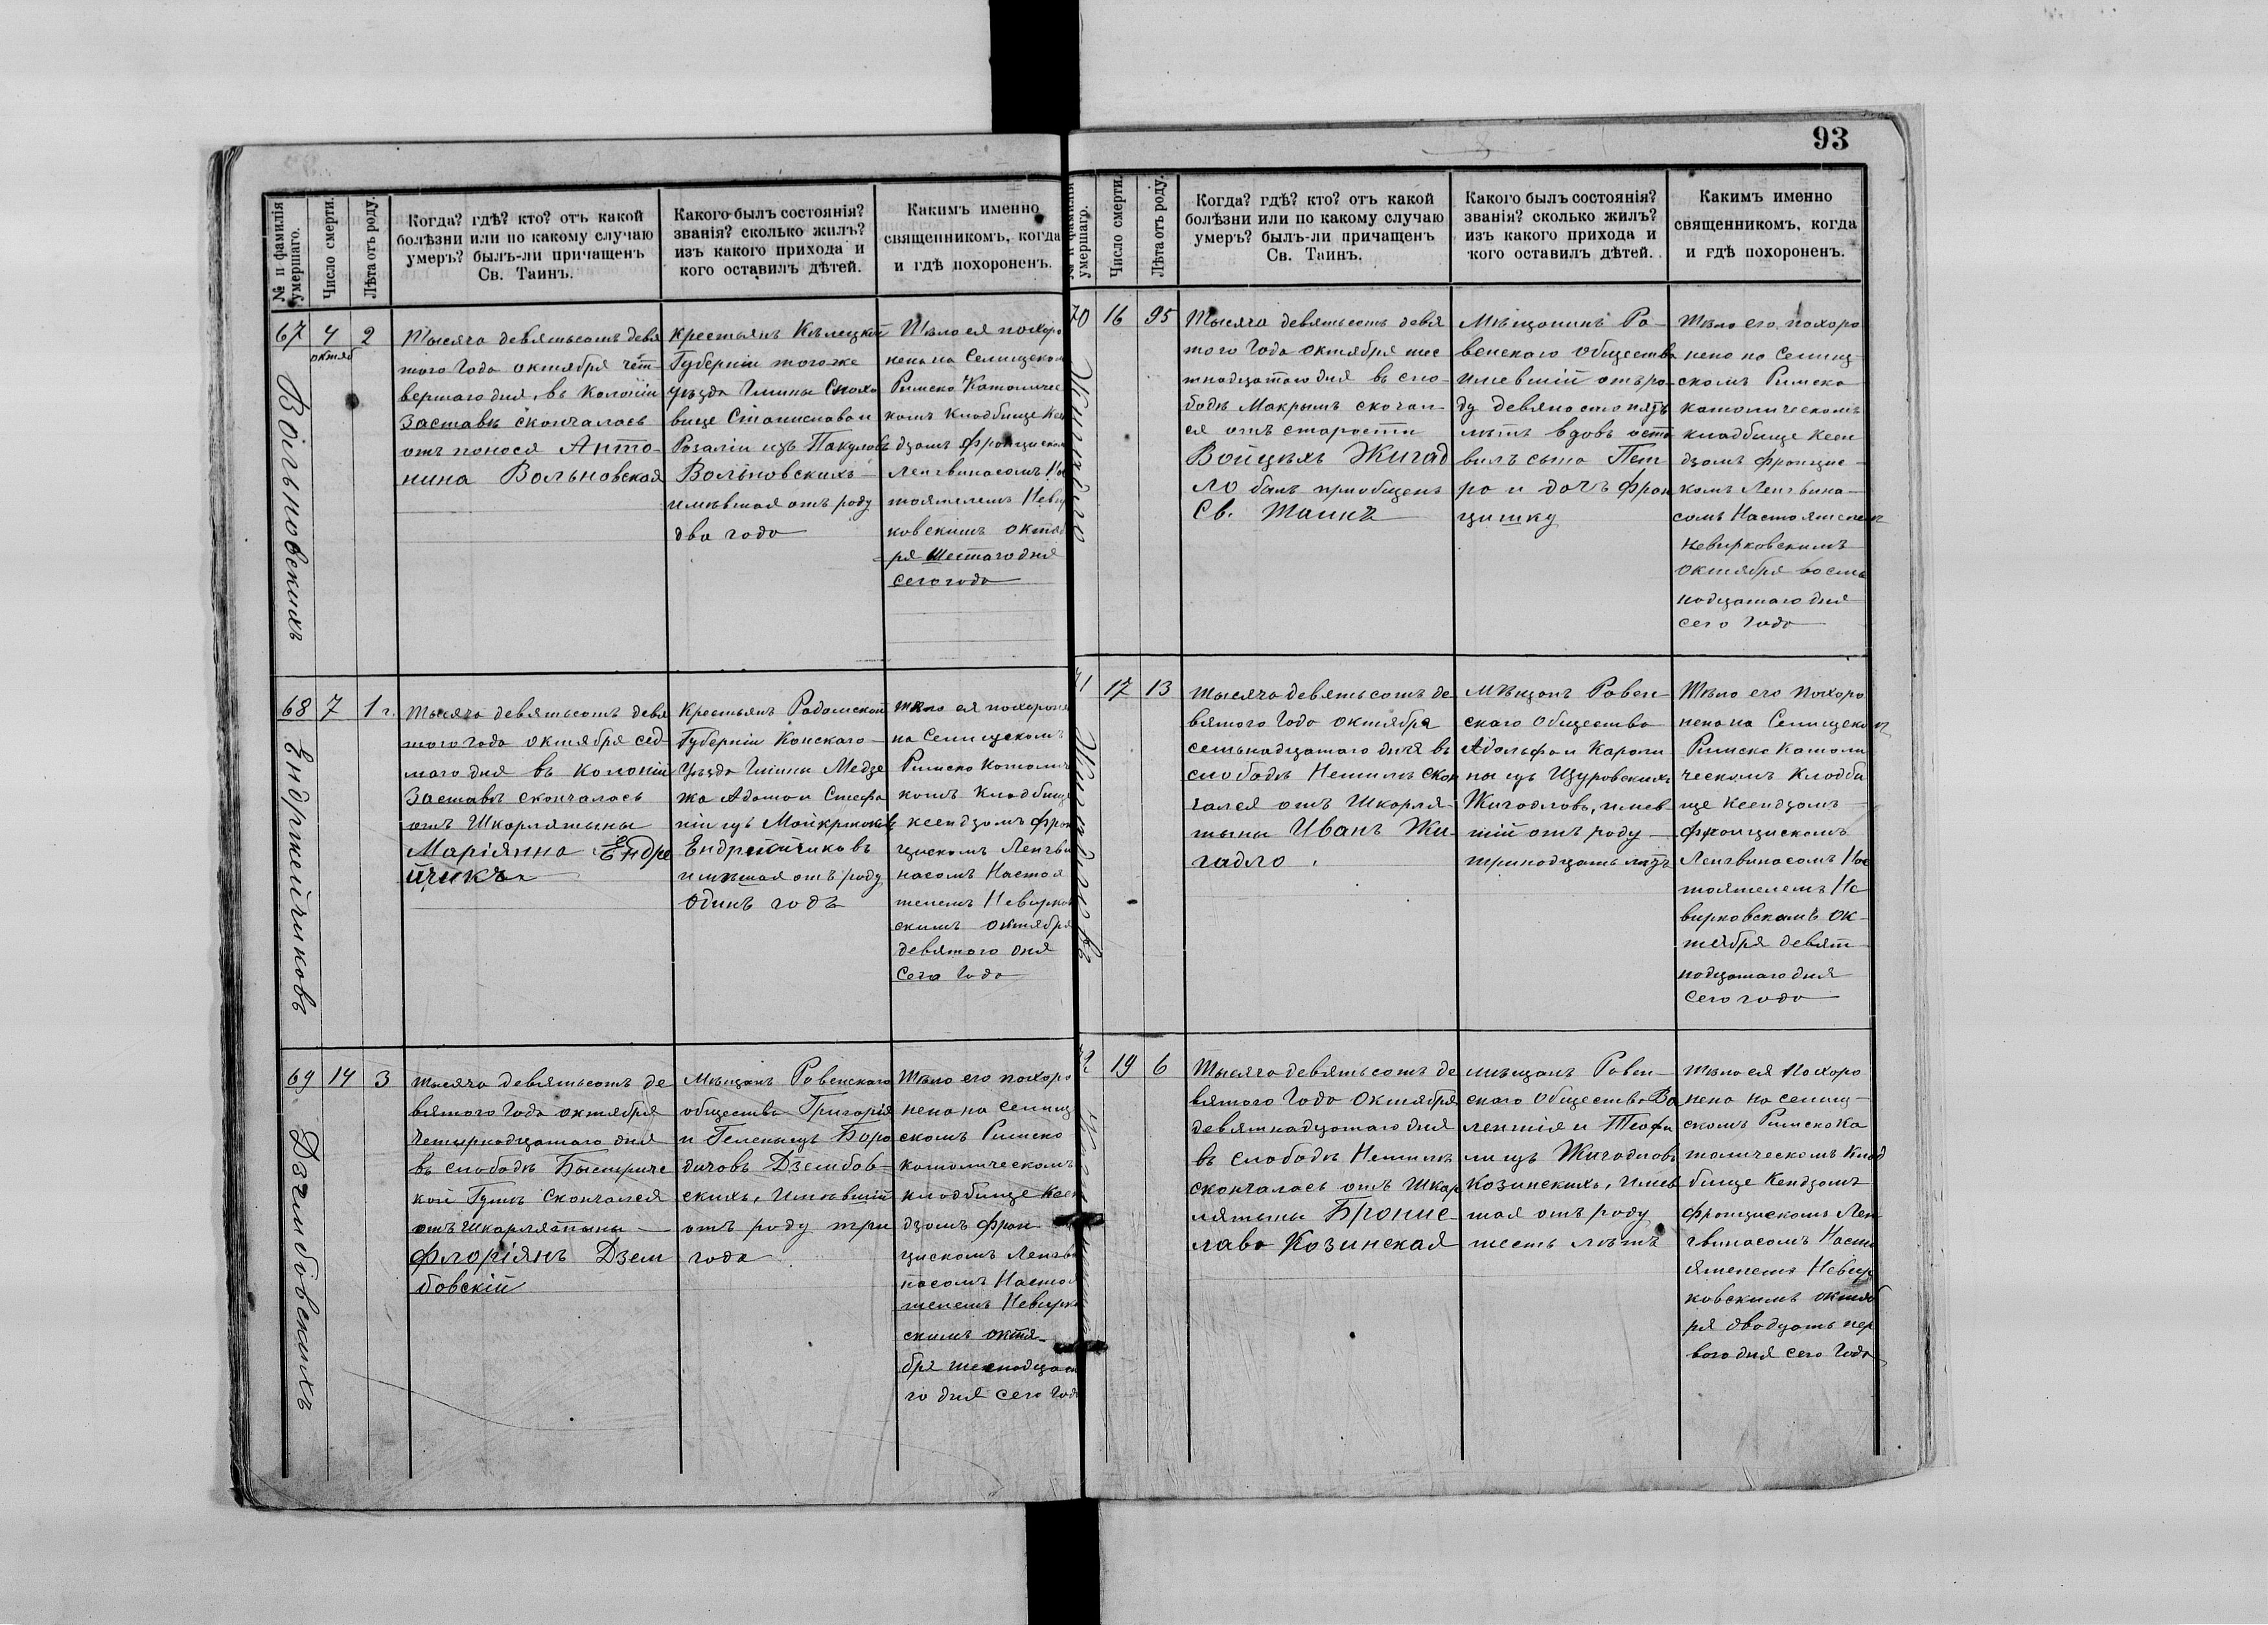 93
№ и фамилія умершаго.
Число смерти.
Лѣта отъ роду.
Когда? гдѣ? кто? отъ какой
болѣзни или по какому случаю
умеръ? былъ-ли причащенъ
Св. Таинъ.
Какого былъ состоянія?
званія? сколько жилъ?
изъ какого прихода и
кого оставилъ дѣтей.
Какимъ именно
священникомъ, когда
и гдѣ похороненъ.
67
Вольновскихъ
4
октяб
2
Тысяча девятьсотъ девя
таго года октября чет
вертаго дня, въ Колоніи
Заставѣ скончалась
отъ поноса Анто-
нина Вольновская
крестьянъ Кѣлецкой
Губерніи того же
уѣзда Гмины
Станислава и
Розаліи изъ
Вольновскихъ
имѣвшая отъ роду
два года
Тѣло ея похоро
нено на Селищском
Римско Католичес
комъ Кладбище Ксен
дзомъ Францискомъ
Ленгвинасомъ Нас
тоятелемъ Невир
ковскимъ октяб
ря шестаго дня
сего года
68
Ендржейчиковъ
7
1 г.
Тысяча девятьсотъ девя
таго года октября сед
маго дня въ колоніи
Заставѣ скончалась
отъ Шкарлятыны
Маріянна Ендре
йчикъ
Крестьянъ Радомской
Губерніи Конскаго
Уѣзда Гмины
Адама и Стефа
ніи изъ
Ендрейчиковъ
имѣвшая отъ роду
одинъ годъ
тѣло ея похороне
на Селищскомъ
Римско Католич
комъ Кладбище
ксендзомъ Фран
цискомъ Ленгви
насомъ Настоя
телемъ Невирков
скимъ октября
девятаго дня
сего года
69
Дзѣмбовскихъ
14
3
тысяча девятьсотъ де
вятаго года октября
четырнадцатаго дня
въ слободѣ Быстриче
кой Гутѣ скончался
отъ Шкарлятыны
Флоріянъ Дзем
бовскій
Мѣщанъ Ровенскаго
общества Григорія
и Гелены изъ Боро
дичовъ Дзембов-
скихъ, имѣвшій
отъ роду три
года
Тѣло его похоро
нено на Селищ
скомъ Римско
католическомъ
кладбище Ксен
дзомъ Фран
цискомъ Ленгви
насомъ Настоя
телемъ Невирков
скимъ октя-
бря шеснадцата
го дня сего года
№ и фамилія умершаго.
Число смерти.
Лѣта отъ роду.
Когда? гдѣ? кто? отъ какой
болѣзни или по какому случаю
умеръ? былъ-ли причащенъ
Св. Таинъ.
Какого былъ состоянія?
званія? сколько жилъ?
изъ какого прихода и
кого оставилъ дѣтей.
Какимъ именно
священникомъ, когда
и гдѣ похороненъ.
70
Жигадло
16
95
Тысяча девятьсотъ девя
таго года октября шес
тнадцатаго дня въ сло-
бодѣ Макрымъ скончал-
ся отъ старости
Войцѣхъ Жигад
ло былъ приобщенъ
Св. Таинъ
Мѣщанинъ Ро-
венскаго общества
имевшій отъ ро-
ду девяносто пять
лѣтъ вдовъ оста
вилъ сына Пет
ра и дочъ Фран
цишку
Тѣло его похоро
нено на Селищ-
скомъ Римско
католическомъ
кладбище Ксен
дзомъ Францис-
комъ Ленгвина-
сомъ Настоятелемъ
Невирковскимъ
октября восем
надцатаго дня
сего года
71
17
13
тысяча девятьсотъ де-
вятаго года октября
семьнадцатаго дня въ
слободѣ Немилѣ скон
чался отъ Шкарля-
тыны Иванъ Жи-
гадло.
мѣщанъ Ровен-
скаго общества
Адольфа и Кароли
ны изъ Щуровскихъ
Жигадловъ, имев
шій отъ роду
тринадцать лѣтъ
Тѣло его похоро
нено на Селищском
Римско Католи
ческомъ Кладби
ще ксендзомъ
Францискомъ
Ленгвинасомъ Нас
тоятелемъ Не
вирковскимъ ок-
тября девят-
надцатаго дня
сего года
72
19
6
Тысяча девятьсотъ де
вятаго года Октября
девятнадцатаго дня
въ слободѣ Немилѣ
скончалась отъ Шкар
лятыны Бронис-
лава Козинская
мѣщанъ Ровен-
скаго Общества Ва
лентія и Теофи
лі изъ Жигадловъ
Козинскихъ, имев
шая отъ роду
шесть лѣтъ
тѣло ея Похоро
нено на селищ-
скомъ Римско Ка
толическомъ Клад
бище Кендзомъ
Францискомъ Лен
гвинасомъ Насто
ятелемъ Невир
ковскимъ октяб
ря двадцать пер
ваго дня сего года